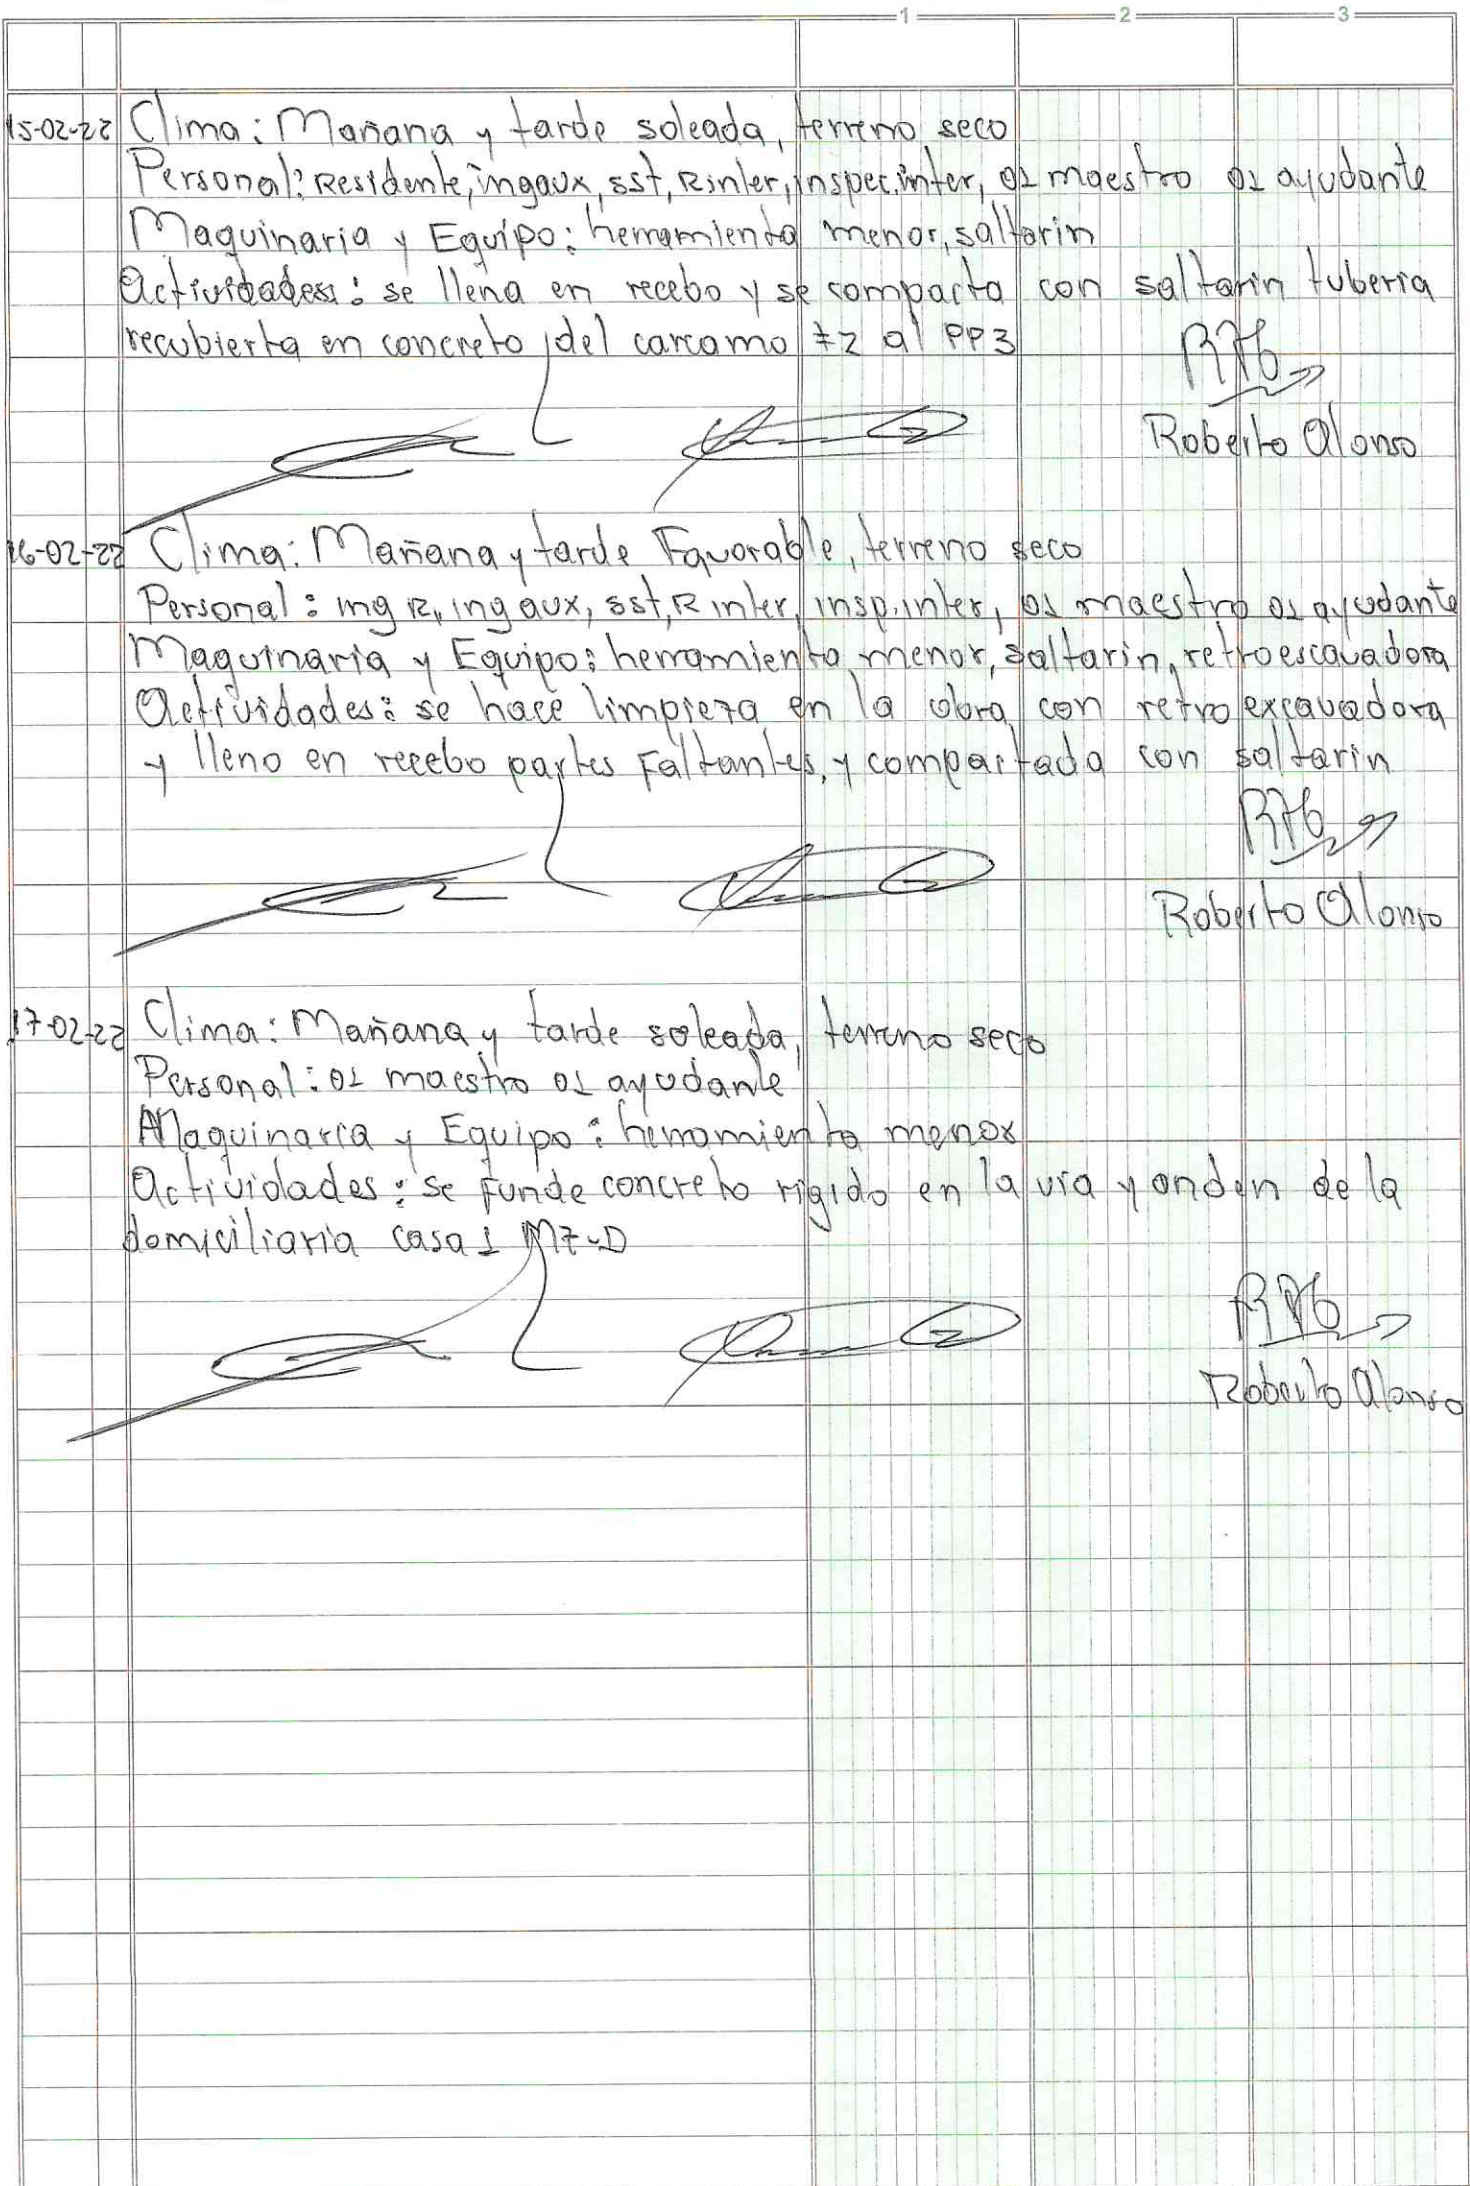 1 2 3
15-02-22 Clima: Mañana y tarde soleada, terreno seco
Personal: Residente, ing aux, sst, R inter, inspec. inter, 01 maestro 01 ayudante
Maquinaria y Equipo: herramienta menor, saltarin
Actividades: se llena en recebo y se compacta con saltarin tuberia
recubierta en concreto del carcamo #2 al PP3
Roberto Alonso
16-02-22 Clima: Mañana y tarde Favorable, terreno seco
Personal: ing R, ing aux, sst, R inter, insp. inter, 01 maestro 01 ayudante
Maquinaria y Equipo: herramienta menor, saltarin, retroescavadora
Actividades: se hace limpieza en la obra con retroexcavadora
y lleno en recebo partes Faltantes, y compactada con saltarin
Roberto Alonso
17-02-22 Clima: Mañana y tarde soleada, terreno seco
Personal: 01 maestro 01 ayudante
Maquinaria y Equipo: herramienta menor
Actividades: se funde concreto rigido en la via y anden de la
domiciliaria casa 1 Mz-D
Roberto Alonso